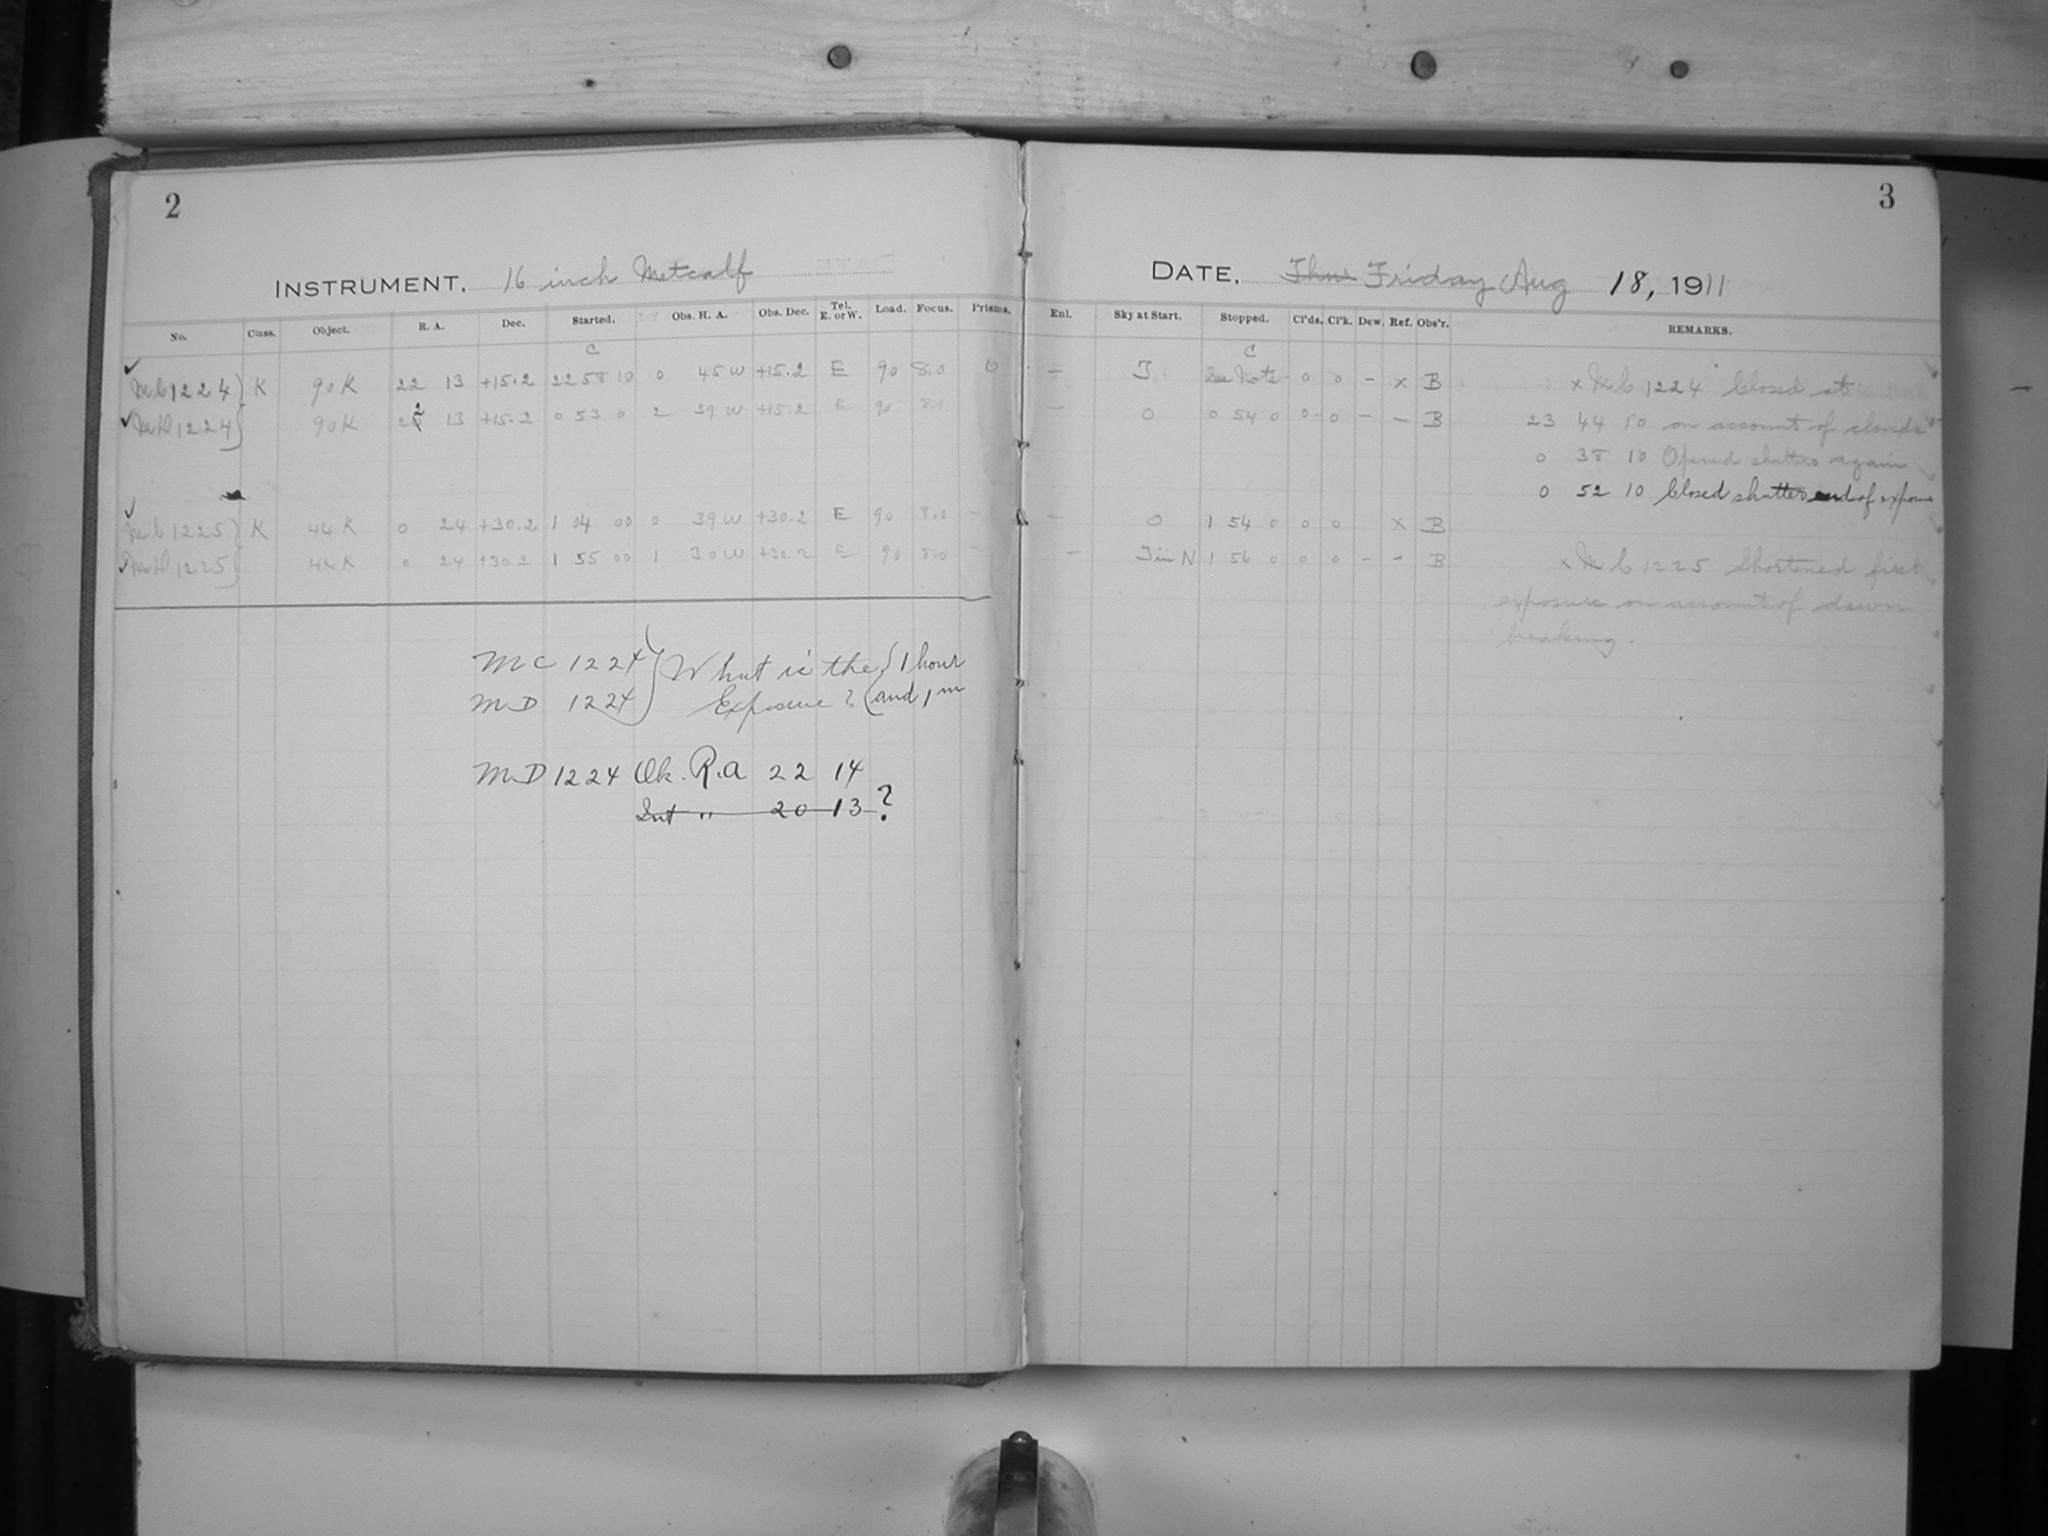 2
3
INSTRUMENT. 16 inch Metcalf
DATE. Thur Friday Aug 18, 1911
No. Class. Object. R. A. Dec. Started. Obs. H. A. Obs. Dec. Tel. E. or W. Load. Focus. Prisms. Enl. Sky at Start. Stopped. Cl'ds. Cl'k. Dew. Ref. Obs'r. REMARKS.
C C
MC 1224 } K 90 K 22 13 +15.2 22 58 10 0 45 W +15.2 E 90 8.0 0 — I See Note - 0 0 - x B x MC 1224 Closed at
MD 1224 } 90 K 22 13 +15.2 0 53 0 2 39 W +15.2 E 90 8.0 — 0 0 54 0 0 0 - - B 23 44 10 on account of clouds
0 38 10 Opened shutters again
0 52 10 Closed shutter end of exposure
MC 1225 } K 44 K 0 24 +30.2 1 04 00 0 39 W +30.2 E 90 8.0 - — 0 1 54 0 0 0 x B
MD 1225 } 44 K 0 24 +30.2 1 55 00 1 30 W +30.2 E 90 8.0 - — I in N 1 56 0 0 0 - - B x MC 1225 Shortened first
exposure on account of dawn
breaking.
MC 1224 } What is the { 1 hour
MD 1224 } Exposure ? ( and 1 m
MD 1224 Ok. R.A 22 14
" 20 13 ?